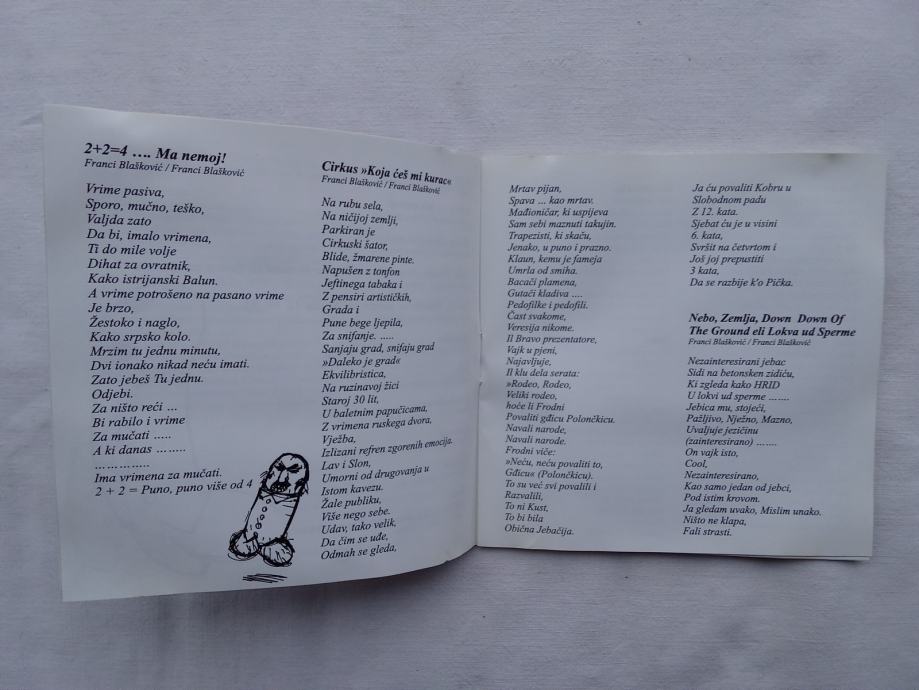 2+2=4 .... Ma nemoj!
Franci Blašković / Franci Blašković
Vrime pasiva,
Sporo, mučno, teško,
Valjda zato
Da bi, imalo vrimena,
Ti do mile volje
Dihat za ovratnik,
Kako istrijanski Balun.
A vrime potrošeno na pasano vrime
Je brzo,
Žestoko i naglo,
Kako srpsko kolo.
Mrzim tu jednu minutu,
Dvi ionako nikad neću imati.
Zato jebeš Tu jednu.
Odjebi.
Za ništo reći ...
Bi rabilo i vrime
Za mučati .....
A ki danas ........
..............
Ima vrimena za mučati.
2 + 2 = Puno, puno više od 4
Cirkus »Koja ćeš mi kurac«
Franci Blašković / Franci Blašković
Na rubu sela,
Na ničijoj zemlji,
Parkiran je
Cirkuski šator,
Blide, žmarene pinte.
Napušen z tonfon
Jeftinega tabaka i
Z pensiri artističkih,
Grada i
Pune bege ljepila,
Za snifanje. .....
Sanjaju grad, snifaju grad
»Daleko je grad«
Ekvilibristica,
Na ruzinavoj žici
Staroj 30 lit,
U baletnim papučicama,
Z vrimena ruskega dvora,
Vježba,
Izlizani refren zgorenih emocija.
Lav i Slon,
Umorni od drugovanja u
Istom kavezu.
Žale publiku,
Više nego sebe.
Udav, tako velik,
Da čim se uđe,
Odmah se gleda,
Mrtav pijan,
Spava ... kao mrtav.
Mađioničar, ki uspijeva
Sam sebi maznuti takujin.
Trapezisti, ki skaču,
Jenako, u puno i prazno.
Klaun, kemu je fameja
Umrla od smiha.
Bacači plamena,
Gutači kladiva ....
Pedofilke i pedofili.
Čast svakome,
Veresija nikome.
Il Bravo prezentatore,
Vajk u pjeni,
Najavljuje,
Il klu dela serata:
»Rodeo, Rodeo,
Veliki rodeo,
hoće li Frodni
Povaliti gđicu Polončkicu.
Navali narode,
Navali narode.
Frodni viče:
»Neću, neću povaliti to,
Gđicu« (Polončkicu).
To su već svi povalili i
Razvalili,
To ni Kust,
To bi bila
Obična Jebačija.
Ja ću povaliti Kobru u
Slobodnom padu
Z 12. kata.
Sjebat ću je u visini
6. kata,
Svršit na četvrtom i
Još joj prepustiti
3 kata,
Da se razbije k'o Pička.
Nebo, Zemlja, Down Down Of
The Ground eli Lokva ud Sperme
Franci Blašković / Franci Blašković
Nezainteresirani jebac
Sidi na betonsken zidiću,
Ki zgleda kako HRID
U lokvi ud sperme .......
Jebica mu, stojeći,
Pažljivo, Nježno, Mazno,
Uvaljuje jezičinu
(zainteresirano) .......
On vajk isto,
Cool,
Nezainteresirano,
Kao samo jedan od jebci,
Pod istim krovom.
Ja gledam uvako, Mislim unako.
Ništo ne klapa,
Fali strasti.